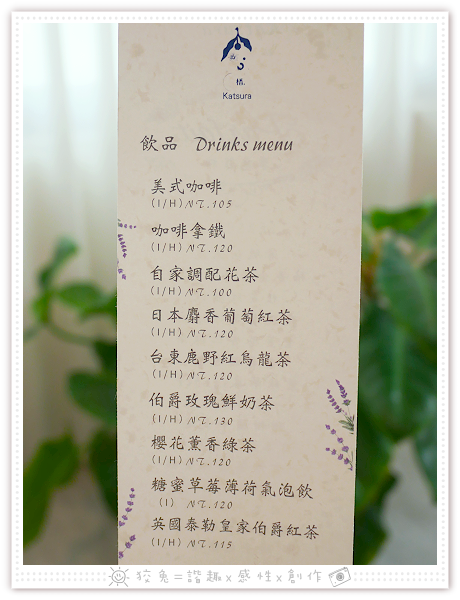 惜
Katsura
飲品 Drinks menu
美式咖啡
(I/H) NT.105
咖啡拿鐵
(I/H) NT.120
自家調配花茶
(I/H) NT.100
日本麝香葡萄紅茶
(I/H) NT.120
台東鹿野紅烏龍茶
(I/H) NT.120
伯爵玫瑰鮮奶茶
(I/H) NT.130
櫻花薰香綠茶
(I/H) NT.120
糖蜜草莓薄荷氣泡飲
(I) NT.120
英國泰勒皇家伯爵紅茶
(I/H) NT.115
狡兔=諧趣x感性x創作